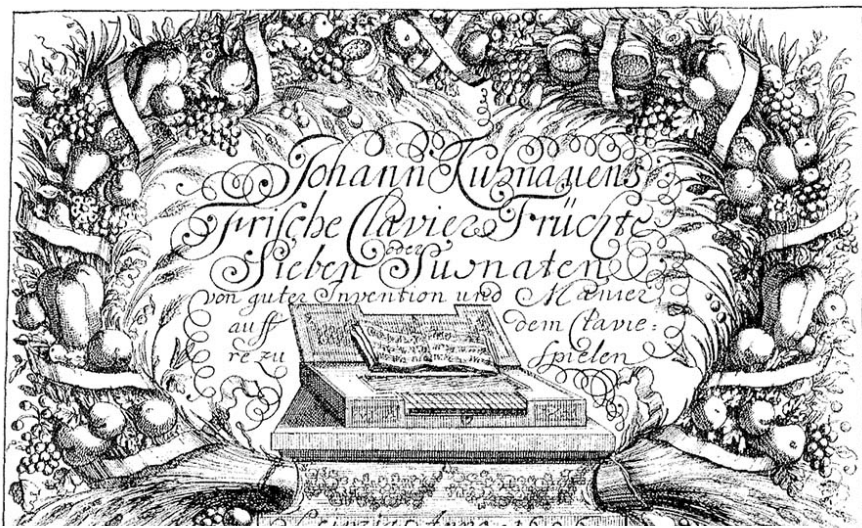 Johann Kuhnauens
Frische Clavier Früchte
oder
Sieben Suonaten
von guter Invention und Manier
auff dem Clavie:
re zu spielen